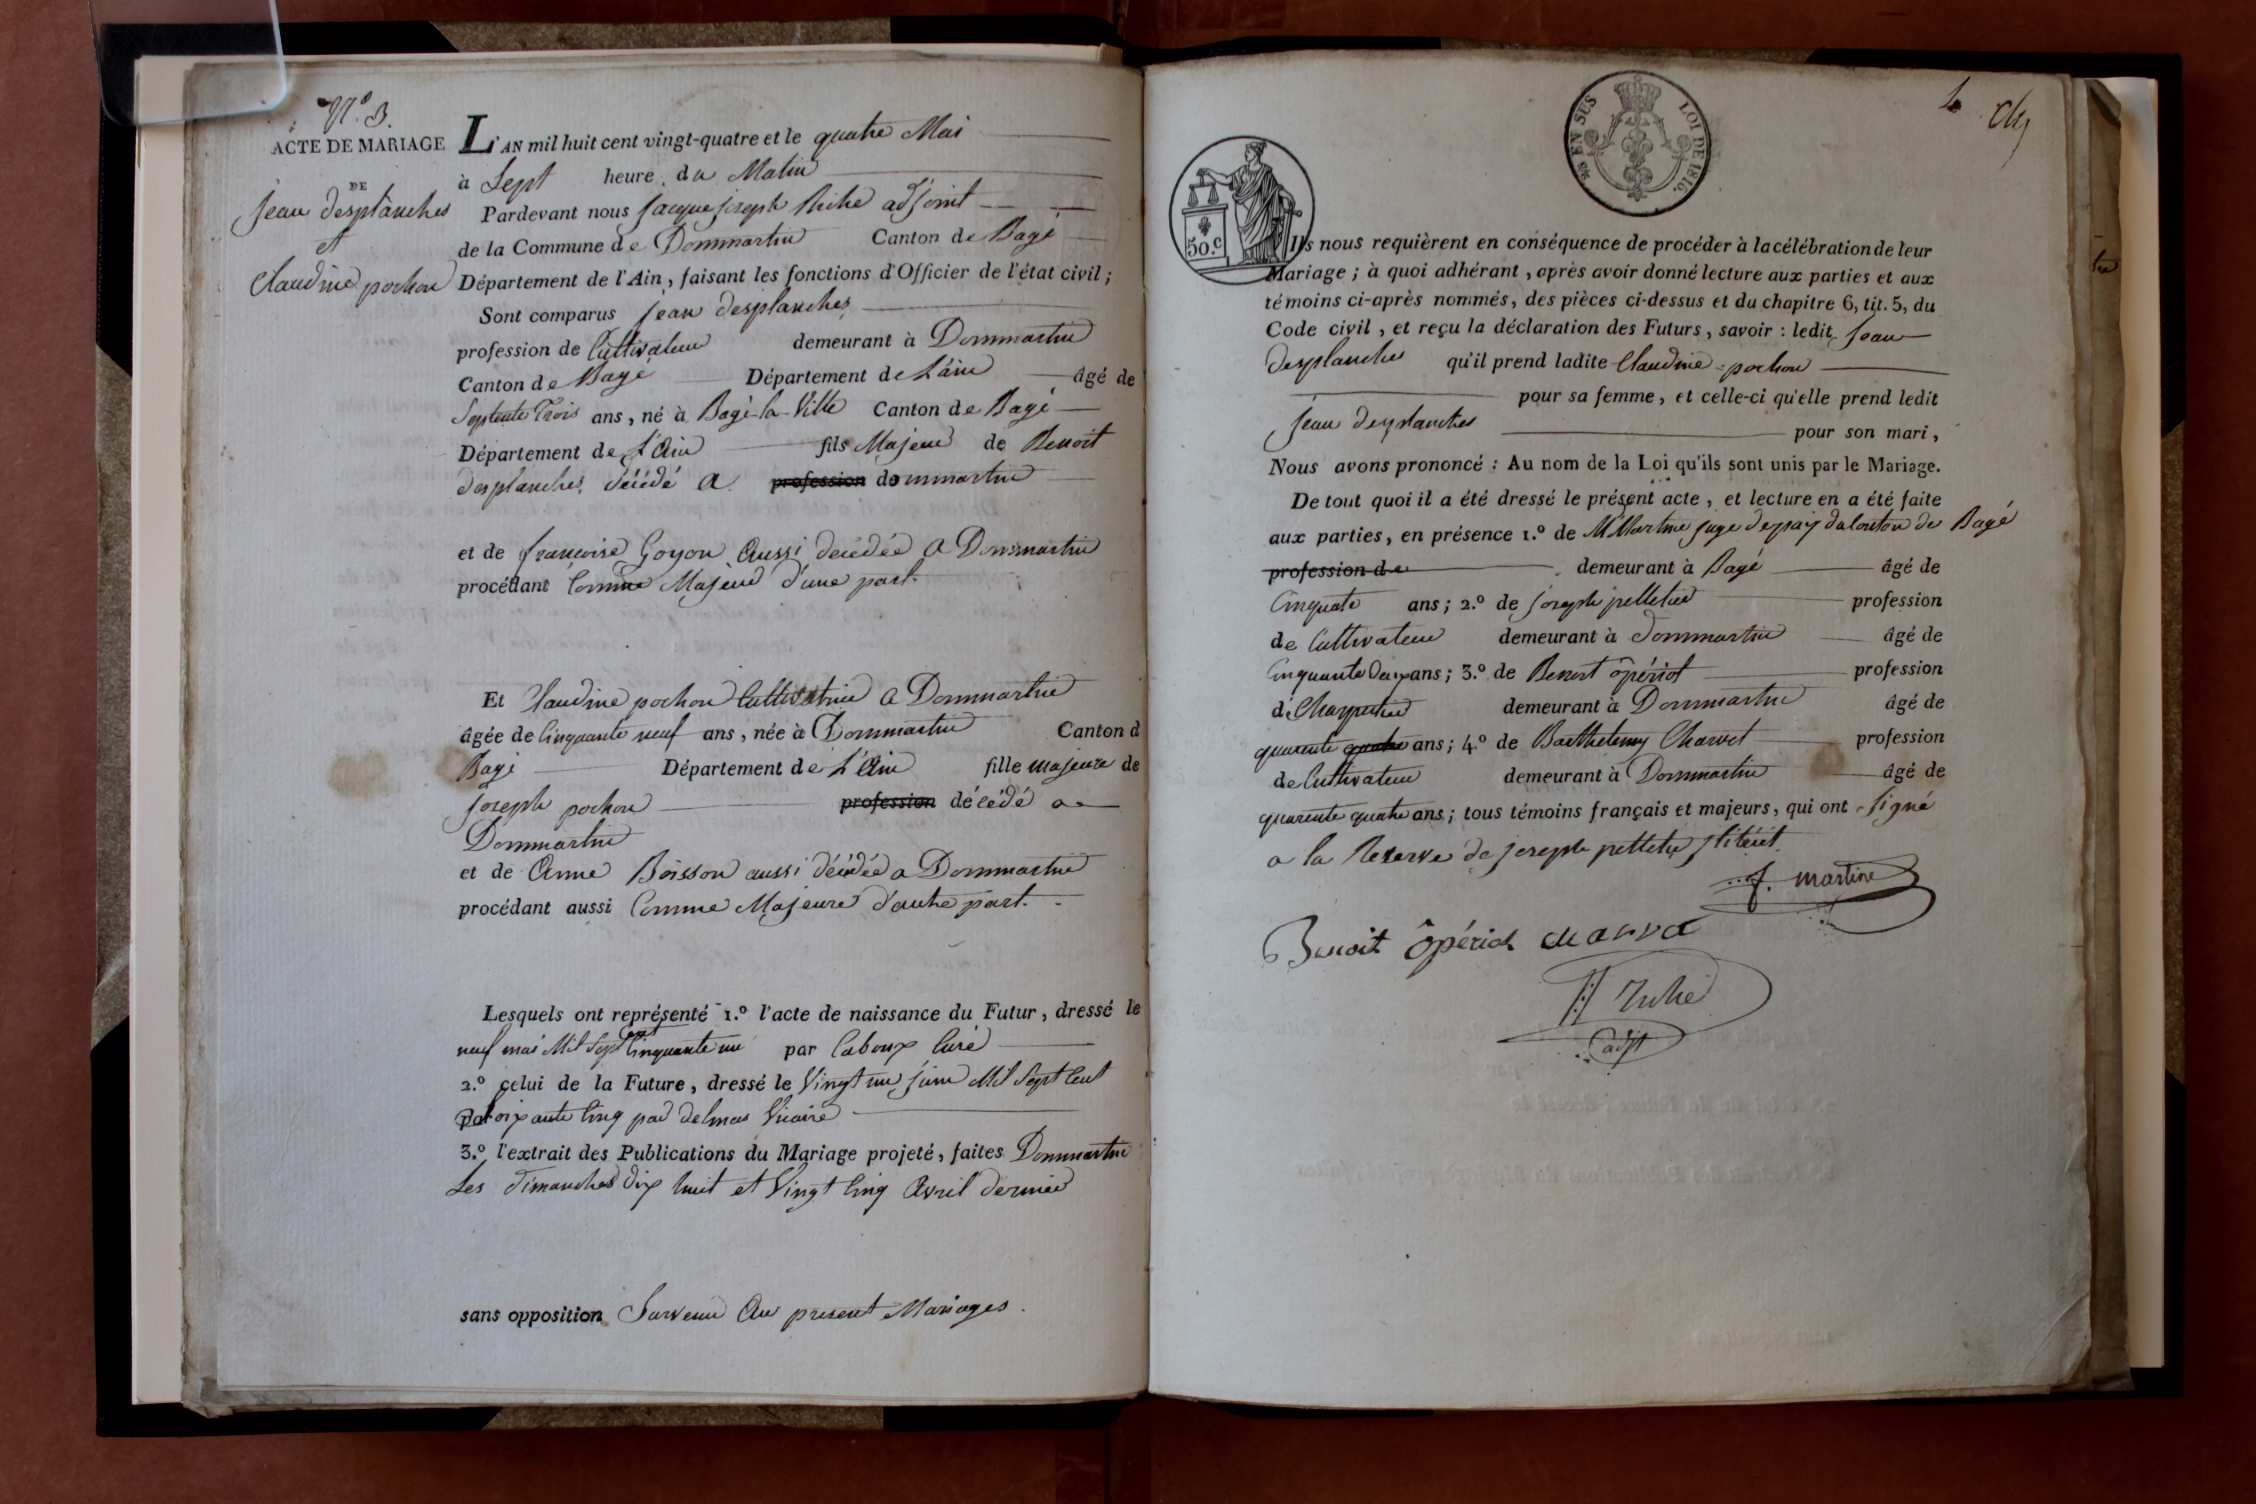 N.º 3.
ACTE DE MARIAGE
DE
jean desplanches
et
Claudine pochon
L'AN mil huit cent vingt-quatre et le quatre Mai
à Sept heure du Matin
Pardevant nous jacque joseph adjoint
de la Commune de Dommartin Canton de Bagé
Département de l'Ain, faisant les fonctions d'Officier de l'état civil;
Sont comparus jean desplanches
profession de Cultivateur demeurant à Dommartin
Canton de Bagé Département de L'ain âgé de
Septente Trois ans, né à Bagé-la-Ville Canton de Bagé
Département de L'Ain fils Majeur de Benoit
desplanches, décédé a profession dommartin
et de francoise Goyon Aussi decédée A Dommartin
procédant Comme Majeur d'une part.
Et Claudine pochon Cultivatrice a Dommartin
âgée de Cinquante neuf ans, née à Dommartin Canton d
Bagé Département de L'Ain fille majeure de
joseph pochon profession décédé a
Dommartin
et de Anne Boisson aussi décédée a Dommartin
procédant aussi Comme Majeure d'autre part.
Lesquels ont représenté 1.º l'acte de naissance du Futur, dressé le
neuf mai Mil Sept Cent Cinquante un par Caboux Curé
2.º celui de la Future, dressé le Vingt un juin Mil Sept Cent
Soixante Cinq par delmas Vicaire
3.º l'extrait des Publications du Mariage projeté, faites Dommartin
Les Dimanches dix huit et Vingt Cinq Avril dernier
sans opposition Survenu Au present Mariages.
EN SUS
LOI DE 1816.
50.c
Ils nous requièrent en conséquence de procéder à la célébration de leur
Mariage; à quoi adhérant, après avoir donné lecture aux parties et aux
témoins ci-après nommés, des pièces ci-dessus et du chapitre 6, tit. 5, du
Code civil, et reçu la déclaration des Futurs, savoir: ledit jean
desplanches qu'il prend ladite Claudine pochon
pour sa femme, et celle-ci qu'elle prend ledit
jean desplanches pour son mari,
Nous avons prononcé: Au nom de la Loi qu'ils sont unis par le Mariage.
De tout quoi il a été dressé le présent acte, et lecture en a été faite
aux parties, en présence 1.º de M Martine juge depaix du Conton de Bagé
profession de demeurant à Bagé âgé de
Cinquate ans; 2.º de joseph pelletier profession
de Cultivateur demeurant à Dommartin âgé de
Cinquante Deux ans; 3.º de Benoit ôpériot profession
de Charpentier demeurant à Dommartin âgé de
quarente quatre ans; 4.º de Barthelemy Charvet profession
de Cultivateur demeurant à Dommartin âgé de
quarente quatre ans; tous témoins français et majeurs, qui ont Signé
a la Reserve de joseph pelletier
f. martine
Benoit ôpériot charva
adjt